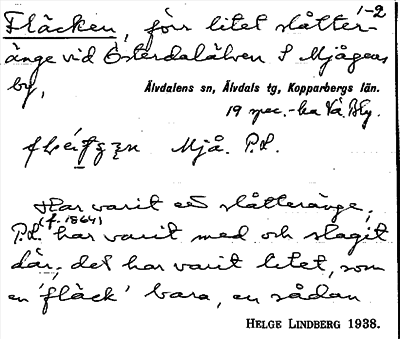 1-2
Fläcken, förr litet slåtter-
änge vid Österdalälven S Mjågens
by,
Älvdalens sn, Älvdals tg, Kopparbergs län.
19
Mjå. P.L.
Har varit ett slåtteränge,
(f. 1864)
P.L. har varit med och slagit
där; det har varit litet, som
en 'fläck' bara, en sådan
HELGE LINDBERG 1938.